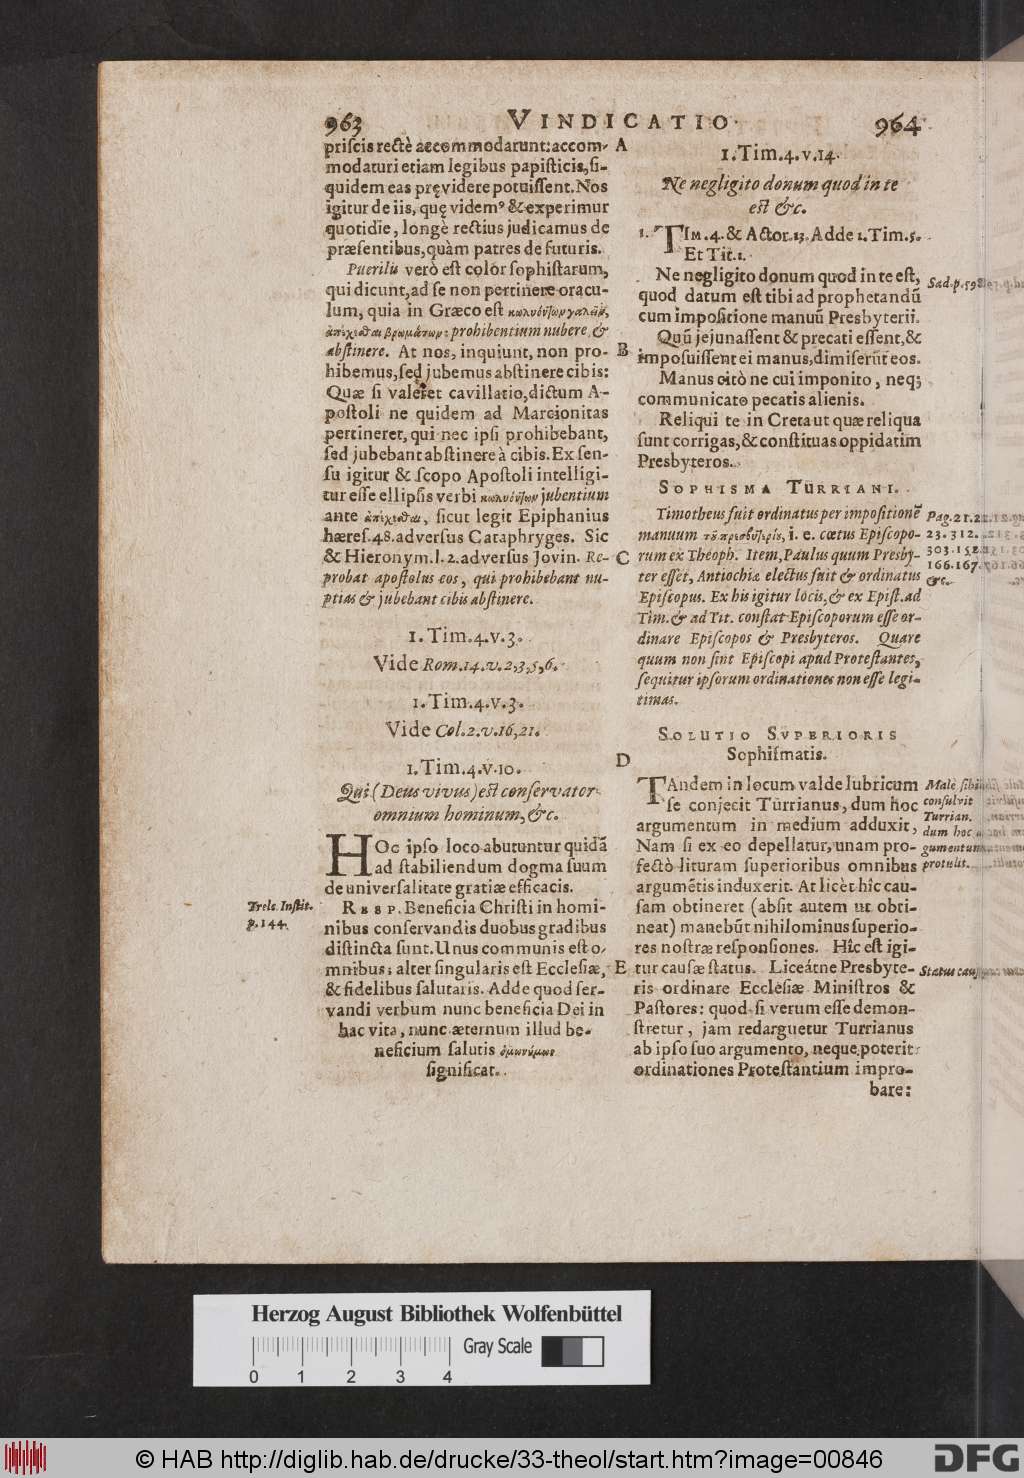 963
VINDICATIO.
964
priſcis rectè accommodarunt: accom-
modaturi etiam legibus papiſticis, ſi-
quidem eas prȩvidere potuiſſent. Nos
igitur de iis, quȩ videmꝰ & experimur
quotidie, longè rectius judicamus de
præſentibus, quàm patres de futuris.
Puerilis verò eſt color ſophiſtarum,
qui dicunt, ad ſe non pertinere oracu-
lum, quia in Græco eſt κωλυόντων γαμεῖν,
ἀπέχεσθαι βρωμάτων: prohibentium nubere, &
abſtinere. At nos, inquiunt, non pro-
hibemus, ſed jubemus abſtinere cibis:
Quæ ſi valeret cavillatio, dictum A-
poſtoli ne quidem ad Marcionitas
pertineret, qui nec ipſi prohibebant,
ſed jubebant abſtinere à cibis. Ex ſen-
ſu igitur & ſcopo Apoſtoli intelligi-
tur eſſe ellipſis verbi κωλυόντων jubentium
ante ἀπέχεσθαι, ſicut legit Epiphanius
hæreſ. 48. adverſus Cataphryges. Sic
& Hieronym. l. 2. adverſus Jovin. Re-
probat apoſtolus eos, qui prohibebant nu-
ptias & jubebant cibis abſtinere.
1. Tim. 4. v. 3.
Vide Rom. 14. v. 2, 3, 5, 6.
1. Tim. 4. v. 3.
Vide Col. 2. v. 16, 21.
1. Tim. 4. v. 10.
Qui (Deus vivus) eſt conſervator
omnium hominum, &c.
HOc ipſo loco abutuntur quidã
ad ſtabiliendum dogma ſuum
de univerſalitate gratiæ efficacis.
Trelc. Inſtit.
p. 144.
RESP. Beneficia Chriſti in homi-
nibus conſervandis duobus gradibus
diſtincta ſunt. Unus communis eſt o-
mnibus; alter ſingularis eſt Eccleſiæ,
& fidelibus ſalutaris. Adde quod ſer-
vandi verbum nunc beneficia Dei in
hac vita, nunc æternum illud be-
neficium ſalutis ὁμωνύμως
ſignificat.
A
B
C
D
E
1. Tim. 4. v. 14.
Ne negligito donum quod in te
eſt &c.
1. TIM. 4. & Actor. 13. Adde 1. Tim. 5.
Et Tit. 1.
Ne negligito donum quod in te eſt,
quod datum eſt tibi ad prophetandũ
cum impoſitione manuũ Presbyterii.
Sad. p. 598
Quũ jejunaſſent & precati eſſent, &
impoſuiſſent ei manus, dimiſerũt eos.
Manus citò ne cui imponito, neq;
communicato pecatis alienis.
Reliqui te in Creta ut quæ reliqua
ſunt corrigas, & conſtituas oppidatim
Presbyteros.
SOPHISMA TURRIANI.
Timotheus fuit ordinatus per impoſitionẽ
manuum τοῦ πρεσβυτερίου, i. e. cœtus Epiſcopo-
rum ex Theoph. Item, Paulus quum Presby-
ter eſſet, Antiochiæ electus fuit & ordinatus
Epiſcopus. Ex his igitur locis, & ex Epiſt. ad
Tim. & ad Tit. conſtat Epiſcoporum eſſe or-
dinare Epiſcopos & Presbyteros. Quare
quum non ſint Epiſcopi apud Proteſtantes,
ſequitur ipſorum ordinationes non eſſe legi-
timas.
Pag. 21. 22.
23. 312.
303. 152
166. 167.
&c.
SOLUTIO SUPERIORIS
Sophiſmatis.
TAndem in locum valde lubricum
ſe conjecit Turrianus, dum hoc
argumentum in medium adduxit,
Nam ſi ex eo depellatur, unam pro-
fectò lituram ſuperioribus omnibus
argumẽtis induxerit. At licèt hîc cau-
ſam obtineret (abſit autem ut obti-
neat) manebũt nihilominus ſuperio-
res noſtræ reſponſiones. Hîc eſt igi-
tur cauſæ ſtatus. Liceátne Presbyte-
ris ordinare Eccleſiæ Miniſtros &
Paſtores: quod ſi verum eſſe demon-
ſtretur, jam redarguetur Turrianus
ab ipſo ſuo argumento, neque poterit
ordinationes Proteſtantium impro-
bare:
Malè ſibi
conſulvit
Turrian.
dum hoc
gumentum
protulit.
Status cauſ
Herzog August Bibliothek Wolfenbüttel
Gray Scale
0 1 2 3 4
© HAB http://diglib.hab.de/drucke/33-theol/start.htm?image=00846
DFG